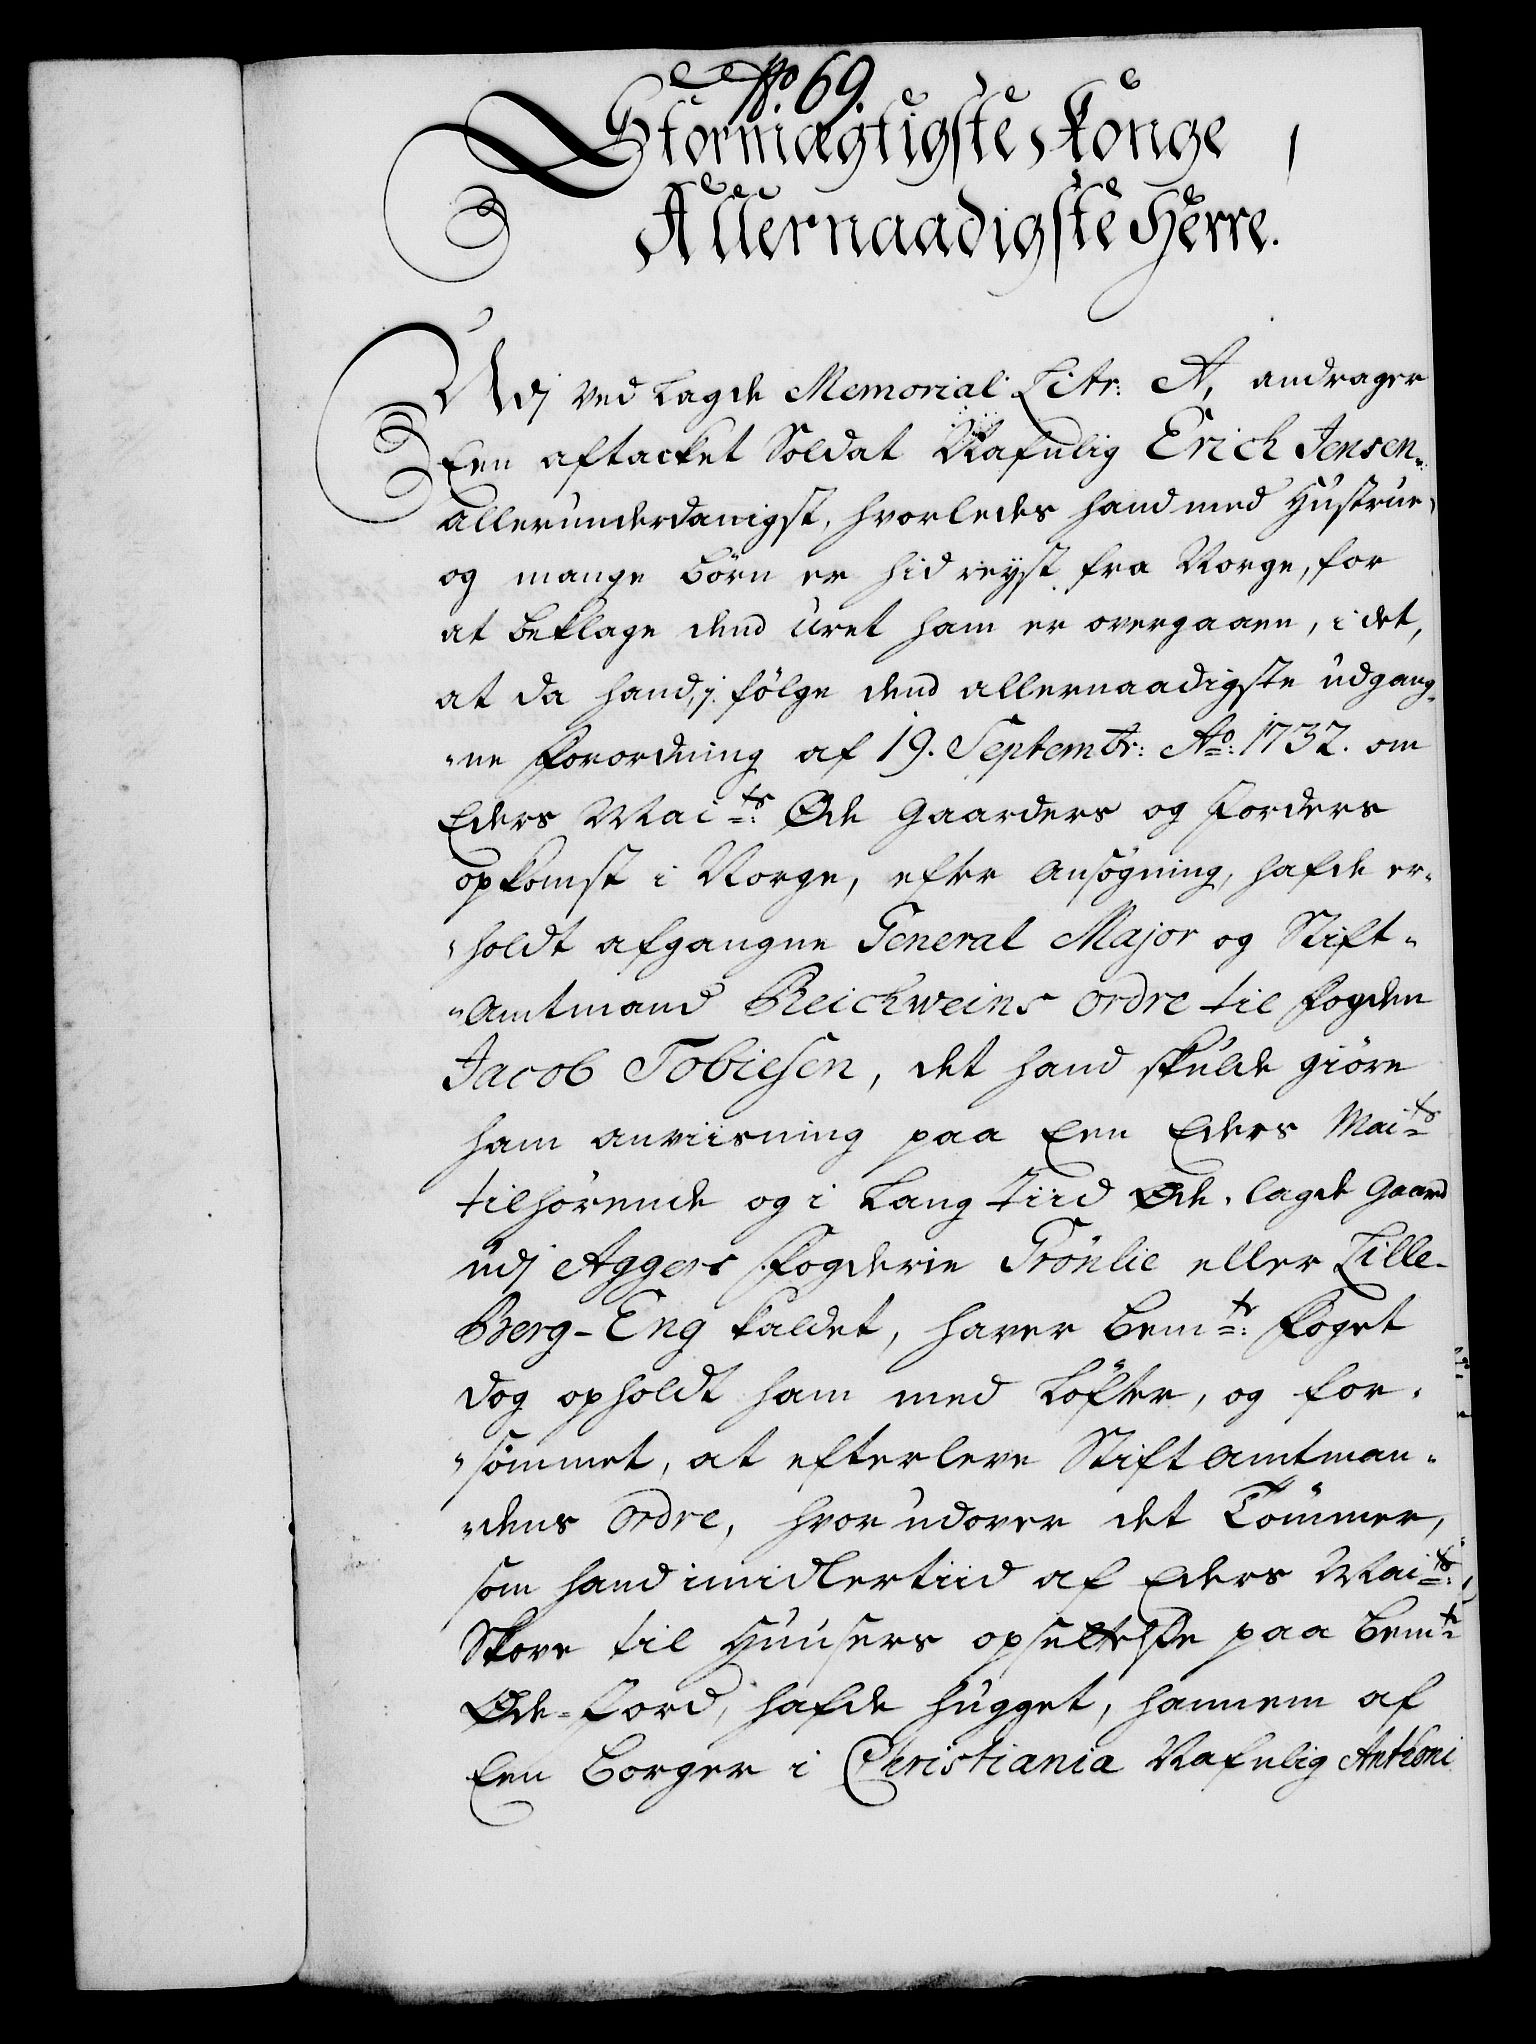 No. 69.
Stormægtigste Konge
Allernaadigste Herre.
Udj Ved Lagde Memorial Litr: A, andrager
Een aftacket Soldat Nafnlig Erich Jensen
allerunderdanigst, hvorledes hand med Hustrue,
og mange Börn er hid reyst fra Norge, for
at beklage dend Uret ham er overgaaen, i det,
at da hand, j fölge dend allernaadigste udgang-
ne Forordning af 19. Septembr: Ao: 1732. om
Eders Maits: Øde Gaarders og Jorders
opkomst i Norge, efter Ansögning, hafde er-
holdt afgangne General Major og Stift-
Amtmand Reichweins Ordre til Fogden
Jacob Tobiesen, det hand skulde giöre
ham anviisning paa Een Eders Maits
tilhörende og i Lang Tiid Øde-lagde Gaard
udj Aggers Fogderie Grönlie eller Lille-
Berg-Eng kaldet, haver bemte: Foget
dog opholdt ham med Löfter, og for-
sömmet, at efterleve Stift Amtman-
dens Ordre, hvor udover det Tömmer,
som hand imidlertiid af Eders Maits:
Skove til Huusers opsettelse paa bemte
Øde-Jord, hafde hugget, hannem af
Een Borger i Christiania Nafnlig Anthoni